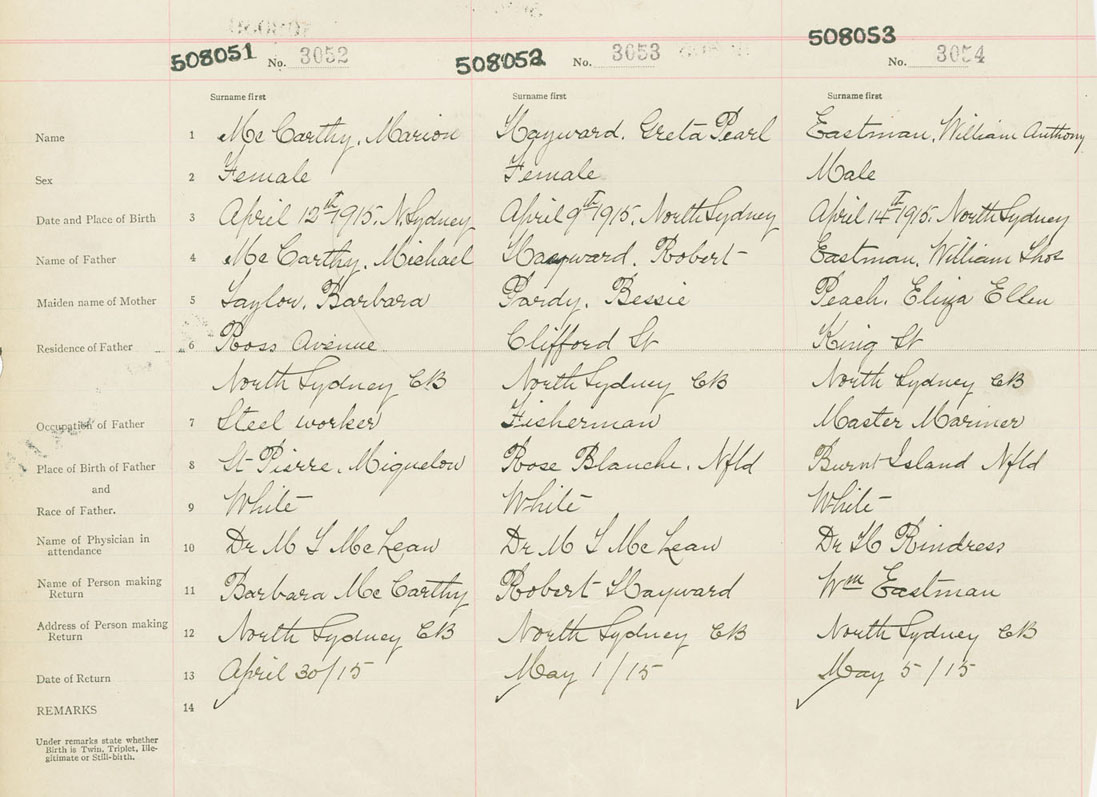 508051 No. 3052
508052 No. 3053
508053
No. 3054
Surname first Surname first Surname first
Name 1 Mc Carthy, Marion Hayward, Greta Pearl Eastman, William Anthony
Sex 2 Female Female Male
Date and Place of Birth 3 April 12th 1915. N. Sydney April 9th 1915. North Sydney April 14th 1915. North Sydney
Name of Father 4 Mc Carthy, Michael Hayward, Robert Eastman, William Thos
Maiden name of Mother 5 Taylor, Barbara Pardy, Bessie Peach, Eliza Ellen
Residence of Father 6 Ross Avenue Clifford St King St
North Sydney CB North Sydney CB North Sydney CB
Occupation of Father 7 Steel worker Fisherman Master Mariner
Place of Birth of Father 8 St Pierre, Miquelon Rose Blanche, Nfld Burnt Island Nfld
and
Race of Father. 9 White White White
Name of Physician in
attendance 10 Dr M S McLean Dr M S McLean Dr H Rindress
Name of Person making
Return 11 Barbara McCarthy Robert Hayward Wm Eastman
Address of Person making
Return 12 North Sydney CB North Sydney CB North Sydney CB
Date of Return 13 April 30/15 May 1/15 May 5/15
REMARKS 14
Under remarks state whether
Birth is Twin, Triplet, Ille-
gitimate or Still-birth.